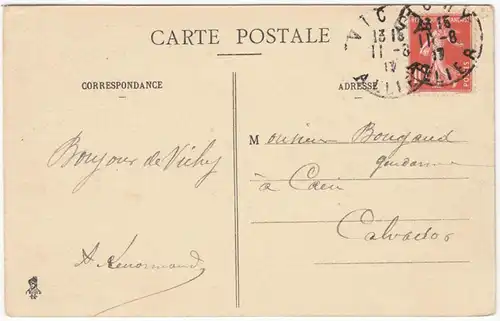 CARTE POSTALE
CORRESPONDANCE
ADRESSE
VICHY
13 15
11 - 8
17
ALLIER
POSTES
Monsieur Bougaud
gendarme
à Caen
Calvados
Bonjour de Vichy
A. Lenormand